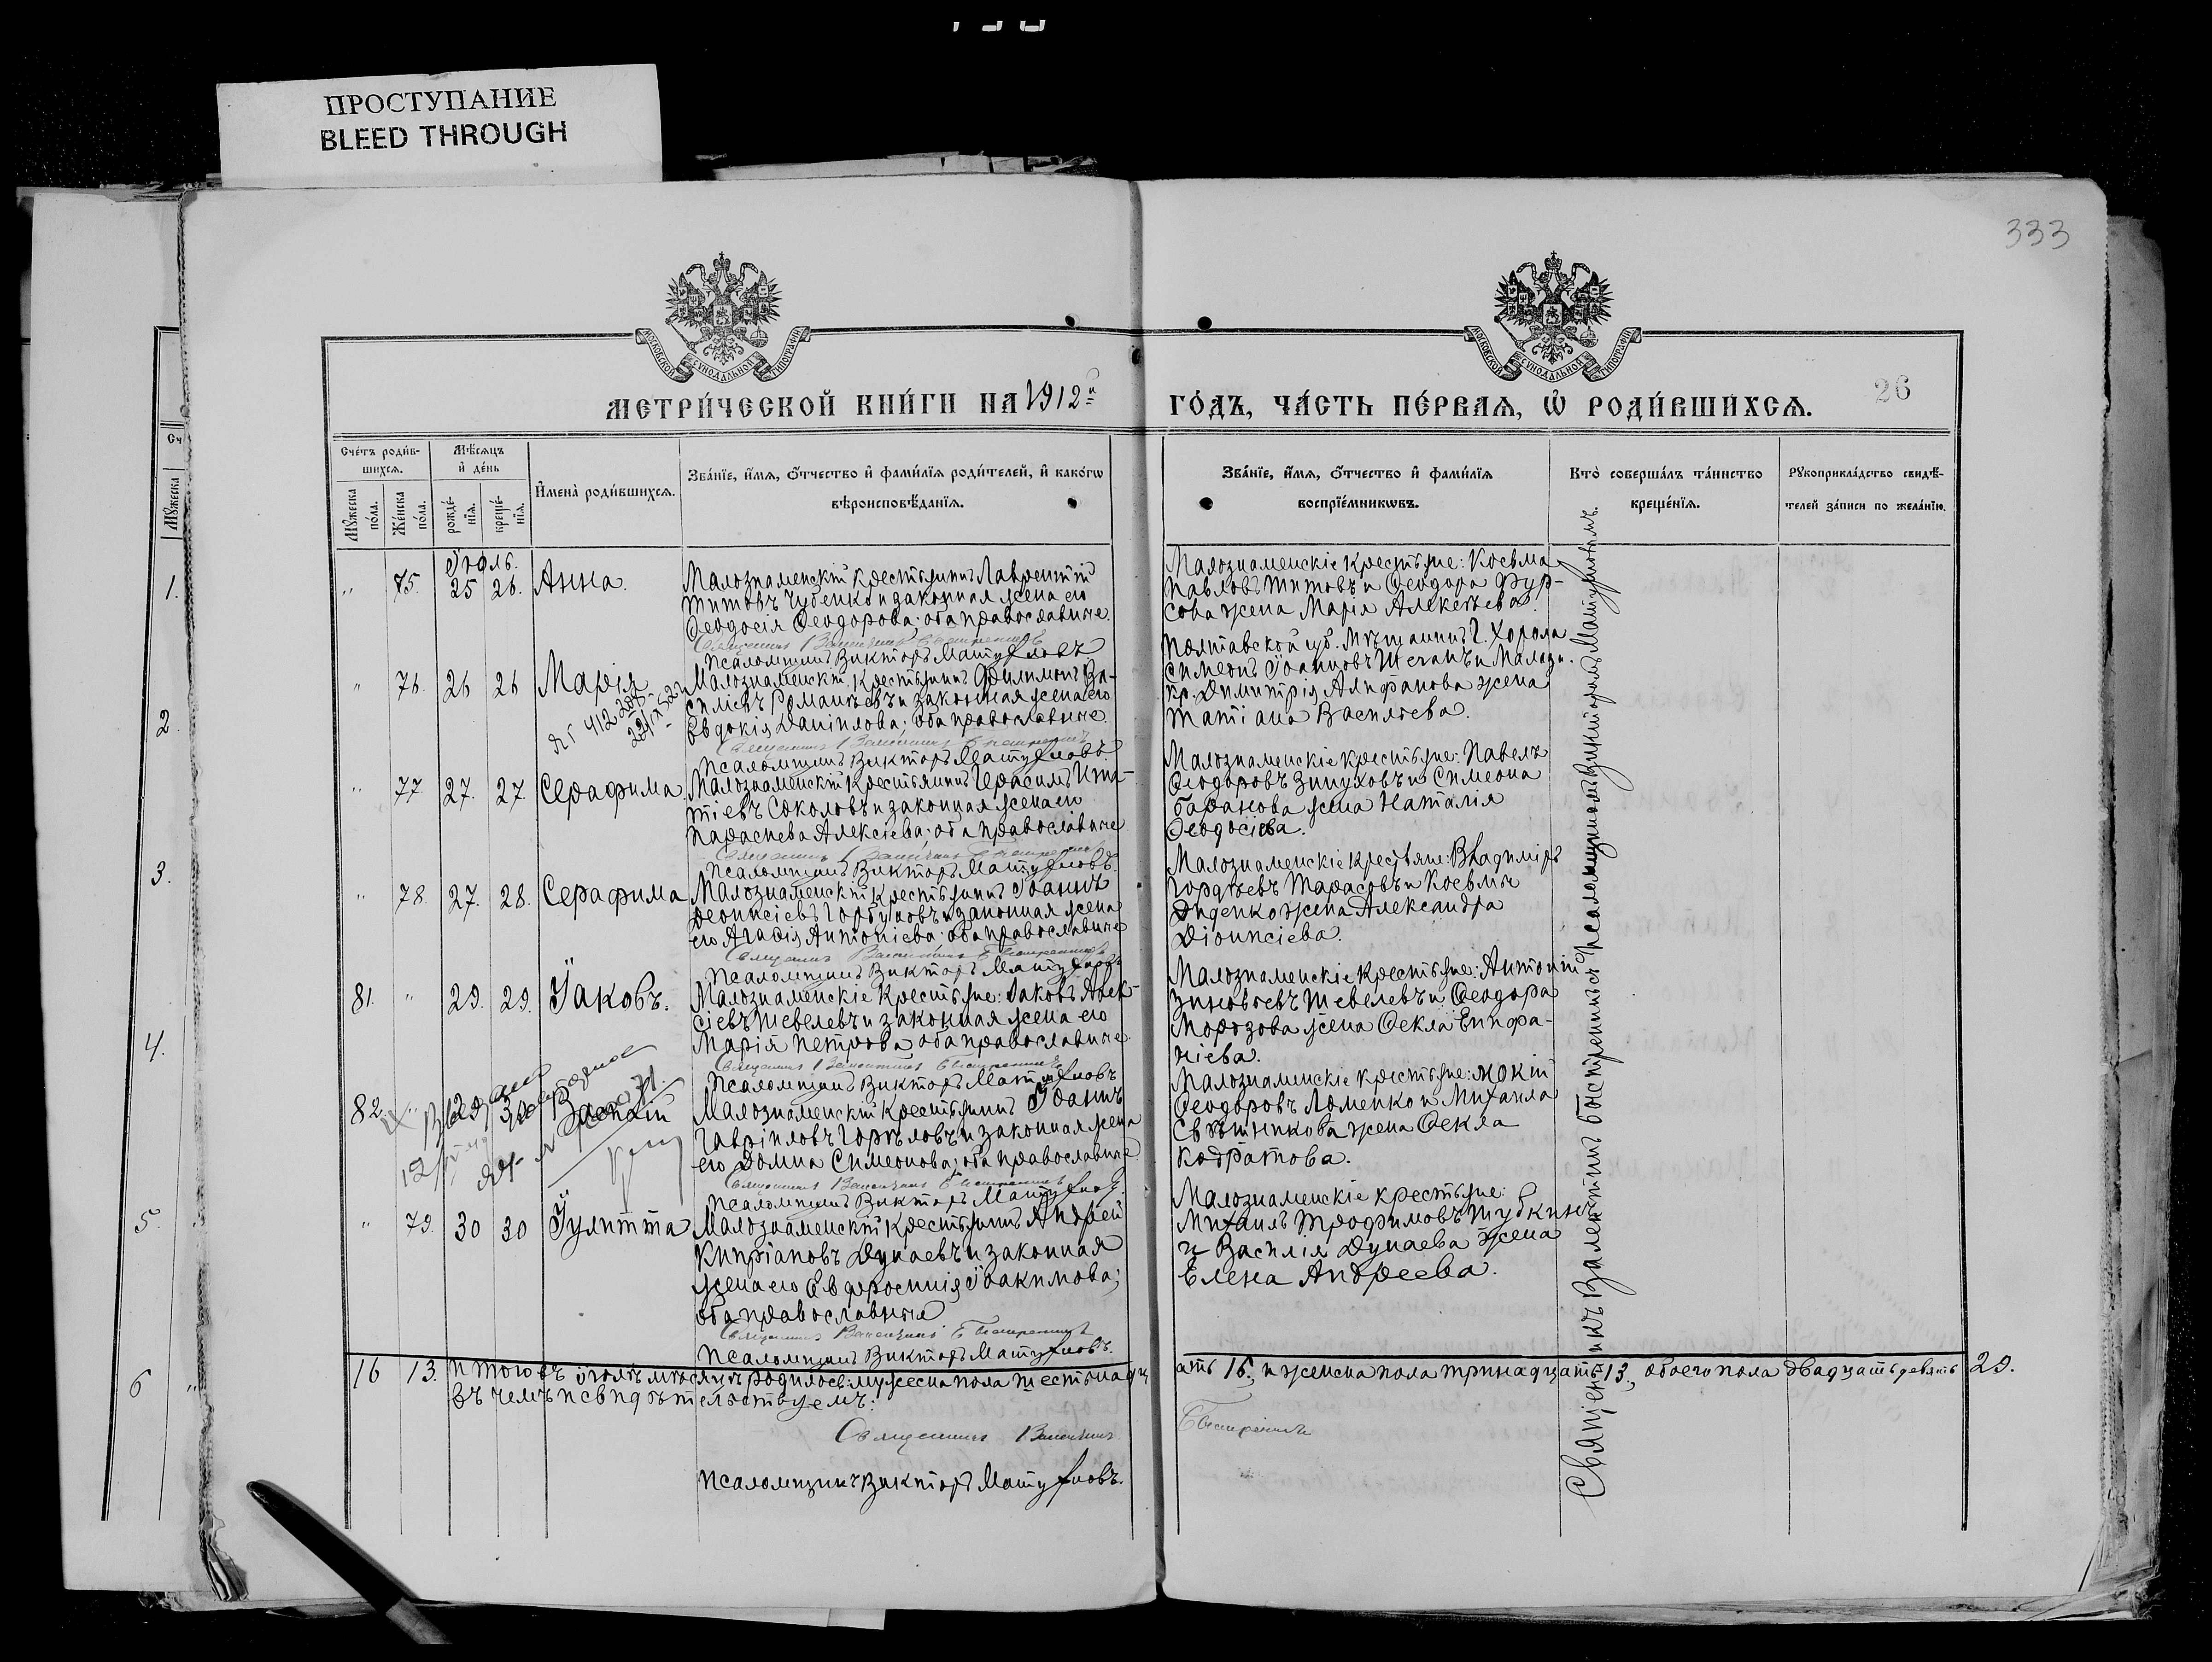 ПРОСТУПАНИЕ
BLEED THROUGH
333
МОСКОВСКОЙ СѴНОДАЛЬНОЙ ТИПОГРАФІИ
МОСКОВСКОЙ СѴНОДАЛЬНОЙ ТИПОГРАФІИ
МЕТРИ́ЧЕСКОЙ КНИ́ГИ НА 1912й
ГО́ДЪ, ЧА́СТЬ ПЕ́РВАЯ, Ѡ҆ РОДИ́ВШИХСЯ.
26
Сче́тъ роди́в-
шихся.
Мѣ́сяцъ
и҆ де́нь
Мꙋ́жеска
по́ла.
Же́нска
по́ла.
рожде́-
нїя.
креще́-
нїя.
И҆мена̀ роди́вшихся.
Зва́нїе, и҆́мя, ѻ҆́тчество и҆ фами́лїя роди́телей, и҆ како́гѡ
вѣроисповѣ́данїя.
Зва́нїе, и҆́мя, ѻ҆́тчество и҆ фами́лїя
воспрїе́мникѡвъ.
Кто̀ соверша́лъ та́инство
креще́нїя.
Рꙋкоприкла́дство свидѣ́-
телей за́писи по жела́нїю.
Іюль.
" 75. 25 26. Анна.
Малознаменскій крестьянинъ Лаврентій
Титовъ Чубенко и законная жена его
Ѳеодосія Ѳеодорова; оба православные.
Священникъ Валентинъ Быстренинъ
Псаломщикъ Викторъ Матуяновъ
Малознаменскіе крестьяне: Косьма
Павловъ Титовъ и Ѳеодора Фур-
сова жена Марія Алексѣева.
" 76. 26 26 Марія
Малознаменскій крестьянинъ Филимонъ Ва-
силіевъ Романьевъ и законная жена его
Евдокія Даніилова; оба православные.
Священникъ Валентинъ Быстренинъ
Псаломщикъ Викторъ Матуяновъ.
Полтавской губ. мѣщанинъ г. Хорола
Симеонъ Іоанновъ и Малозн.
кр. Димитрія Алифанова жена
Татіана Васильева.
" 77 27. 27 Серафима.
Малознаменскій крестьянинъ Герасимъ Игна-
тіевъ Соколовъ и законная жена его
Параскева Алексіева; оба православные
Священникъ Валентинъ Быстренинъ
Псаломщикъ Викторъ Матуяновъ.
Малознаменскіе крестьяне: Павелъ
Ѳеодоровъ Зинуховъ и Симеона
Баранова жена Наталія
Ѳеодосіева.
" 78. 27. 28. Серафима
Малознаменскій крестьянинъ Іоаннъ
Деонисіевъ Горбуновъ и законная жена
его Агаѳія Антоніева; оба православные
Священникъ Валентинъ Быстренинъ
Псаломщикъ Викторъ Матуяновъ
Малознаменскіе крестьяне: Владиміръ
Гордѣевъ Тарасовъ и Косьмы
Диденко жена Александра
Діонисіева.
81. " 29. 29. Іаковъ.
Малознаменскіе крестьяне: Іаковъ Алек-
сіевъ Шевелевъ и законная жена его
Марія Петрова оба православные.
Священникъ Валентинъ Быстренинъ
Псаломщикъ Викторъ Матуяновъ
Малознаменскіе крестьяне: Антоній
Зиновьевъ Шевелевъ и Ѳеодора
Морозова жена Ѳекла Епифа-
ніева.
82 " 29 30
Малознаменскій крестьянинъ Іоаннъ
Гавріиловъ Горѣловъ и законная жена
его Домна Симеонова; оба православные
Священникъ Валентинъ Быстренинъ
Псаломщикъ Викторъ Матуяновъ.
Малознаменскіе крестьяне: Мокій
Ѳеодоровъ Ломенко и Михаила
Свѣтникова жена Ѳекла
Кодратова.
" 79. 30 30 Іулитта
Малознаменскій крестьянинъ Андрей
Кипріановъ Дунаевъ и законная
жена его Евфросинія Іоакимова;
оба православные
Священникъ Валентинъ Быстренинъ
Псаломщикъ Викторъ Матуяновъ.
Малознаменскіе крестьяне:
Михаилъ Трофимовъ Шубкинъ
и Василія Дунаева жена
Елена Андреева.
Священникъ Валентинъ Быстренинъ съ Псаломщикомъ Викторомъ Матуяновымъ.
16 13. Итого въ іюлѣ мѣсяцѣ родилось: мужеска пола шестнадц
ать 16, и женска пола тринадцать 13, обоего пола двадцать девять 29.
Въ чемъ и свидѣтельствуемъ:
Священникъ Валентинъ Быстренинъ
Псаломщикъ Викторъ Матуяновъ.
1.
2.
3.
4.
5.
6